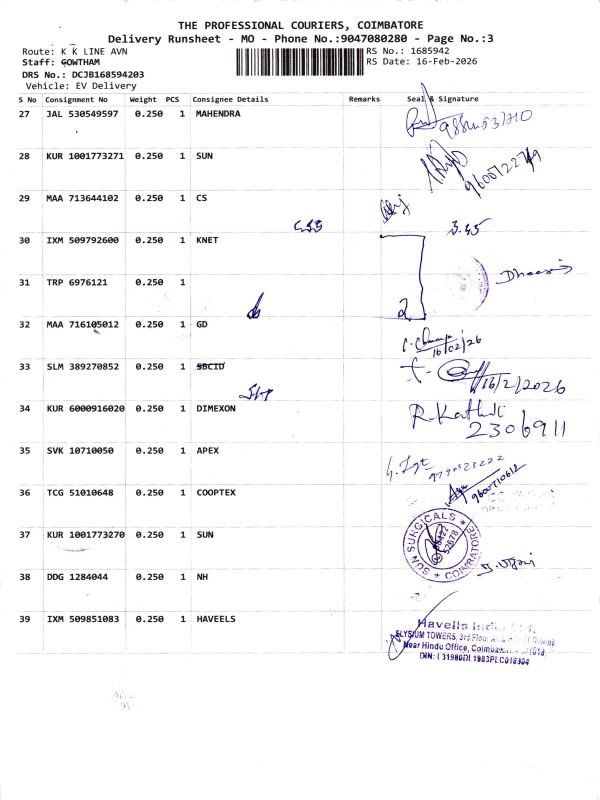 THE PROFESSIONAL COURIERS, COIMBATORE
Delivery Runsheet - MO - Phone No.:9047080280 - Page No.:3
Route: K K LINE AVN
RS No.: 1685942
Staff: GOWTHAM
RS Date: 16-Feb-2026
DRS No.: DCJB168594203
Vehicle: EV Delivery
S No Consignment No Weight PCS Consignee Details Remarks Seal & Signature
27 JAL 530549597 0.250 1 MAHENDRA
28 KUR 1001773271 0.250 1 SUN
29 MAA 713644102 0.250 1 CS
3.45
30 IXM 509792600 0.250 1 KNET
31 TRP 6976121 0.250 1
2
32 MAA 716105012 0.250 1 GD
16/02/26
33 SLM 389270852 0.250 1 SBCID
16/2/2026
34 KUR 6000916020 0.250 1 DIMEXON
R. Kathili
2306911
35 SVK 10710050 0.250 1 APEX
9790523222
36 TCG 51010648 0.250 1 COOPTEX
9600710612
37 KUR 1001773270 0.250 1 SUN
SUN SURGICALS
COIMBATORE
38 DDG 1284044 0.250 1 NH
39 IXM 509851083 0.250 1 HAVEELS
Havells India Ltd.
ELYSIUM TOWERS, 3rd Floor
Near Hindu Office, Coimbatore
CIN: L31900DL1983PLC016304